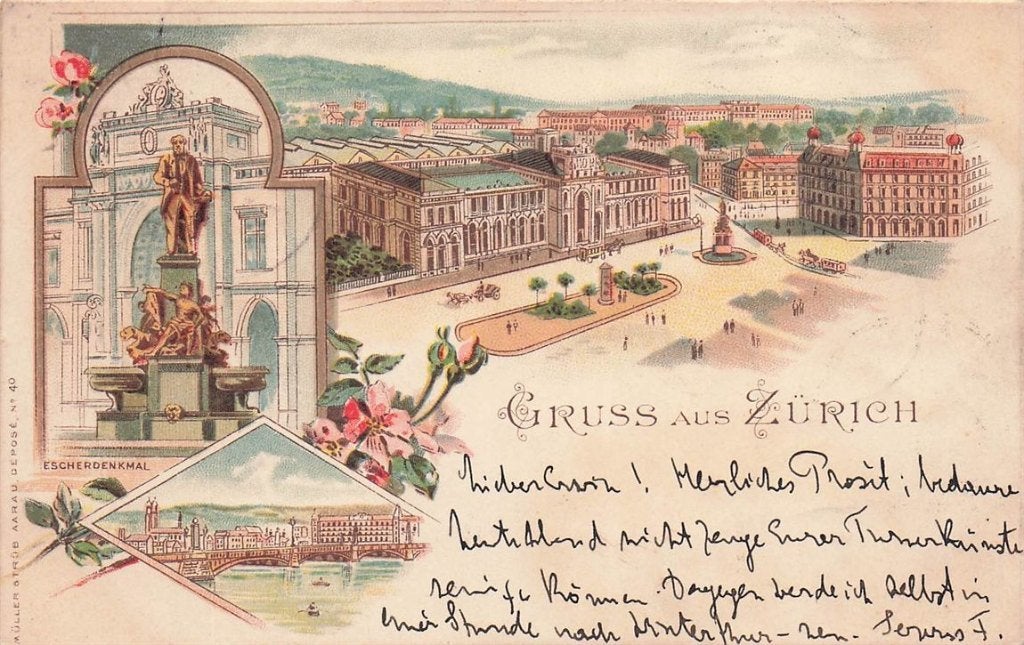 ESCHERDENKMAL
GRUSS AUS ZÜRICH
Lieber Erwin! Herzliches Prosit; bedaure
nicht Zeuge Eurer Turnerkünste
sein zu können. Dagegen werde ich selbst in
einer Stunde nach Winterthur
MÜLLER & TRÜB AARAU DEPOSÉ. Nº 40